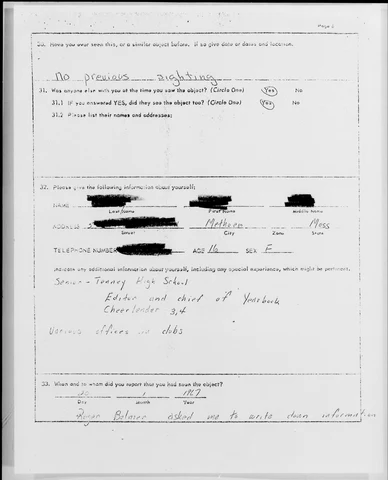 Page 5
30. Have you ever seen this, or a similar object before. If so give date or dates and location.
no previous sighting
31. Was anyone else with you at the time you saw the object? (Circle One) Yes No
31.1 IF you answered YES, did they see the object too? (Circle One) Yes No
31.2 Please list their names and addresses:
32. Please give the following information about yourself:
NAME
Last Name First Name Middle Name
ADDRESS Methuen Mass
Street City Zone State
TELEPHONE NUMBER AGE 16 SEX F
Indicate any additional information about yourself, including any special experience, which might be pertinent.
Senior - Tenney High School
Editor and chief of Yearbook
Cheerleader 3,4
Various offices in clubs
33. When and to whom did you report that you had seen the object?
1 1967
Day Month Year
Roger Belmer asked me to write down information